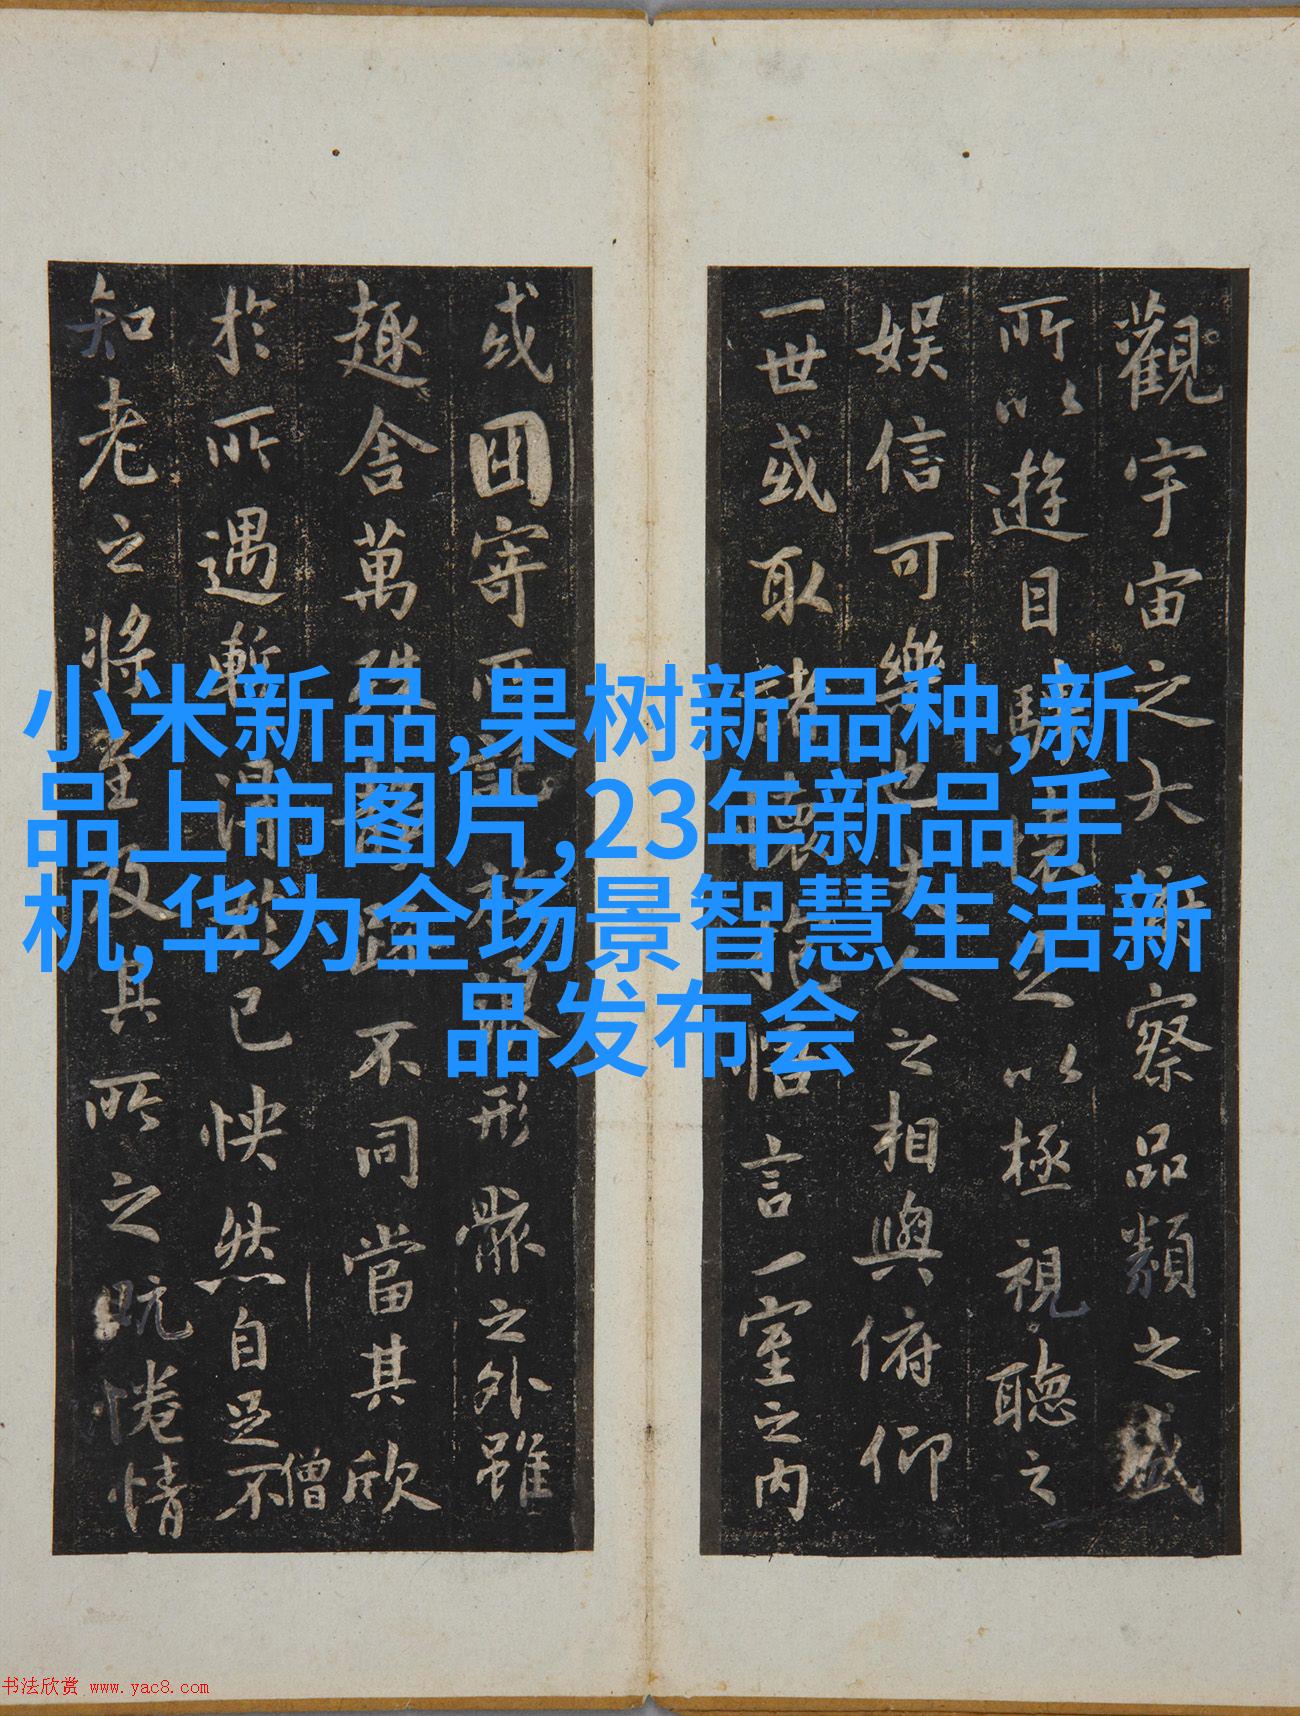 小米新品,果树新品种,新
品上市图片,23年新品手
机,华为全场景智慧生活新
品发布会
觀宇宙之大察品類之盛
所以遊目騁懷足以極視聽之
娛信可樂也夫人之相與俯仰
一世或取諸懷抱悟言一室之内
或因寄所託放浪形骸之外雖
趣舍萬殊不同當其欣
於所遇暫得己快然自足不
僧
知老之將至及其所之既惓情
书法欣赏 www.yac8.com